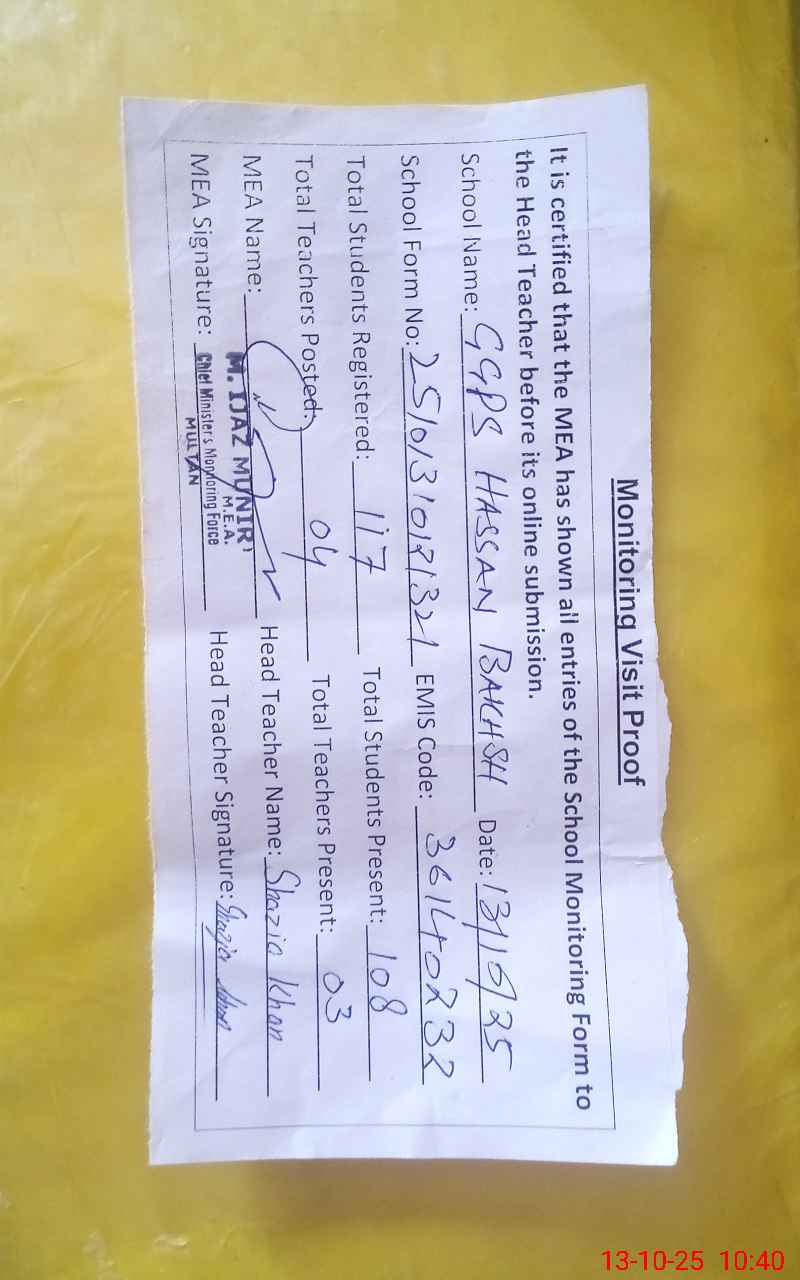 Monitoring Visit Proof
It is certified that the MEA has shown all entries of the School Monitoring Form to
the Head Teacher before its online submission.
School Name: GGPS HASSAN BAKHSH Date: 13/10/25
School Form No: EMIS Code: 36140232
Total Students Registered: 117 Total Students Present: 108
Total Teachers Posted: 04 Total Teachers Present: 03
MEA Name: Head Teacher Name: Shazia Khan
M. IJAZ MUNIR
M.E.A.
MEA Signature: Chief Ministers Monitoring Force Head Teacher Signature: Shazia Khan
MULTAN
13-10-25 10:40